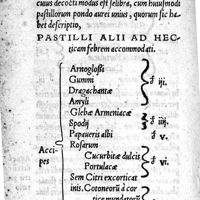 cuius decocti modus est selibræ, cum huiusmodi
pastillorum pondo aurei unius, quorum sic ha-
bet descriptio,
PASTILLI ALII AD HEC-
ticam febrem accommodati.
Arnoglossi
Gummi
Dragachantæ
Amyli
iij.
Glebæ Armeniacæ
Spodij
iiij.
Papaueris albi
v.
Rosarum
Acci-
pies
Cucurbitæ dulcis
Portulacæ
v.
Sem Citri excorticat
inis. Cotoneorū à cor
tice mundatorū